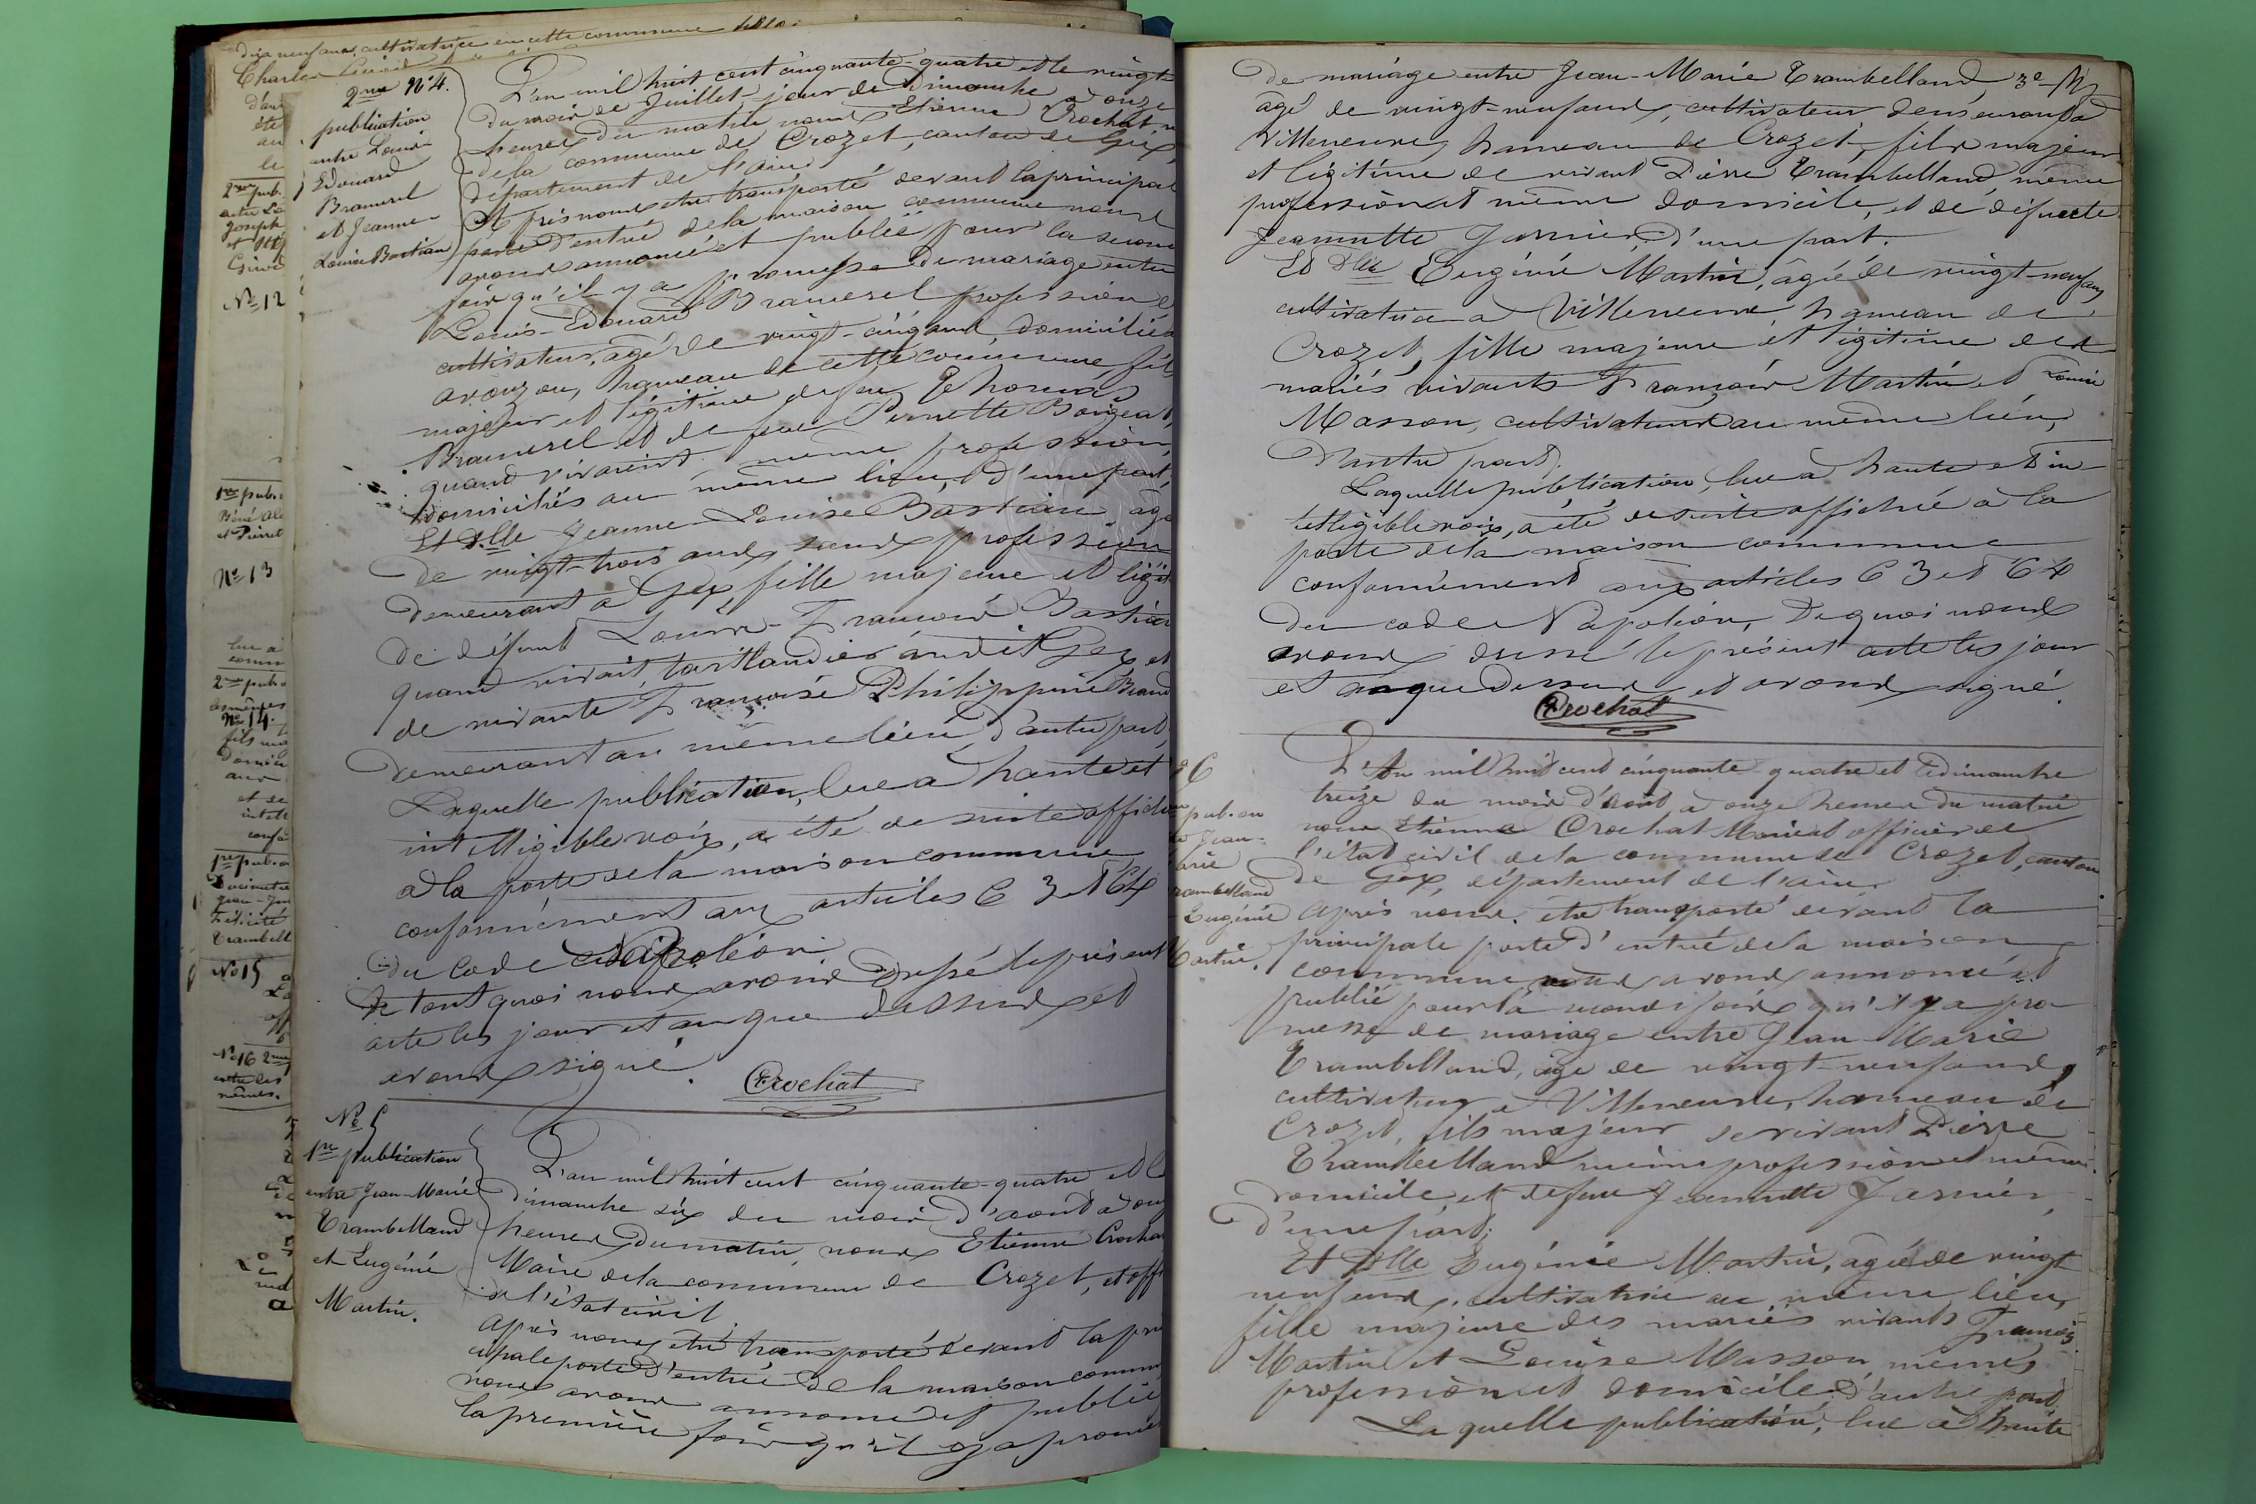 dix neuf ans, cultivatrice en cette commune
Charles
2me pub.
No 12
1re pub.
et Pierret
No 13
lue a
comm
2me pub.
No 14.
fils
domicile
aux
et de
confo
1re pub.
Félicité
Trambell
No 15
No 16 2me
entre les
mêmes.
2me No 4.
publication
entre Louis-
Edouard
Bramerel
et Jeanne-
Louise Bastian
L'an mil huit cent cinquante-quatre et le vingt
du mois de Juillet jour de Dimanche à onze
heures du matin nous Etienne Crochat,
de la commune de Crozet, canton de Gex,
département de l'ain
Après nous être transporté devant la principal
porte d'entrée de la maison commune nous
avons annoncé et publié pour la secon
fois qu'il y a promesse de mariage entre
Louis-Edouard Bramerel profession d
cultivateur, âgé de vingt-cinq ans, domicilié
avouzon, hameau de cette commune, fils
majeur et légitime de feu Thomas
Bramerel et de feue Pernette Borgeat,
quand vivaient même profession,
domiciliés au même lieu, d'une part,
Et Dlle Jeanne-Louise Bastian, âgé
de vingt-trois ans, sans profession
demeurant à Gex, fille majeure et légit
de défunt Louis-François Bastian
quand vivait, taillandier audit Gex, et
de vivante Françoise Philippine
demeurant au même lieu, d'autre part,
Laquelle publication, lue à haute et
intelligible voix, a été de suite affichée
à la porte de la maison commune
conformément aux articles 63 et 64
du code Napoléon.
De tout quoi nous avons dressé le présent
acte les jour et an que dessus et
avons signé.
Crochat
No 5
1re publication
entre Jean-Marie
Trambelland
et Eugénie
Martin.
L'an mil huit cent cinquante-quatre et le
dimanche six du mois d'août à onz
heures du matin, nous Etienne Crochat
Maire de la commune de Crozet, et off
de l'état civil
après nous être transporté devant la prin
cipale porte d'entrée de la maison commun
nous avons annoncé et publié
la première fois qu'il y a prome
de mariage entre Jean-Marie Trambelland,
âgé de vingt-neuf ans, cultivateur demeurant à
Villeneuve, hameau de Crozet, fils majeur
et légitime de vivant Pierre Trambelland, même
profession et même domicile, et de défuncte
Jeannette Jasnier, d'une part.
Et Dlle Eugénie Martin, âgée de vingt-neuf ans
cultivatrice à Villeneuve, hameau de
Crozet, fille majeure et légitime des
mariés vivants François Martin et Louise
Masson, cultivateurs au même lieu,
D'autre part.
Laquelle publication, lue à haute et in-
telligible voix, a été de suite affichée à la
porte de la maison commune
conformément aux articles 63 et 64
du code Napoléon, De quoi nous
avons dressé le présent acte les jour
et an que dessus et avons signé.
Crochat
6
pub.on
Jean-
arie
rambelland
Eugénie
Martin.
L'An mil huit cent cinquante-quatre et le dimanche
treize du mois d'août, à onze heures du matin
nous Etienne Crochat Maire et officier de
l'état civil de la commune de Crozet, canton
de Gex, département de l'ain.
Après nous être transporté devant la
principale porte d'entrée de la maison
commune nous avons annoncé et
publié pour la seconde fois qu'il y a pro
messe de mariage entre Jean Marie
Trambelland, âgé de vingt-neuf ans,
cultivateur à Villeneuve, hameau de
Crozet, fils majeur de vivant Pierre
Trambelland même profession et même
domicile, et de feue Jeannette Jasnier,
d'une part;
Et Dlle Eugénie Martin, agée de vingt
neuf ans, cultivatrice au même lieu,
fille majeure des mariés vivants François
Martin et Louise Masson, mêmes
profession et domicile, d'autre part.
Laquelle publication, lue à haute